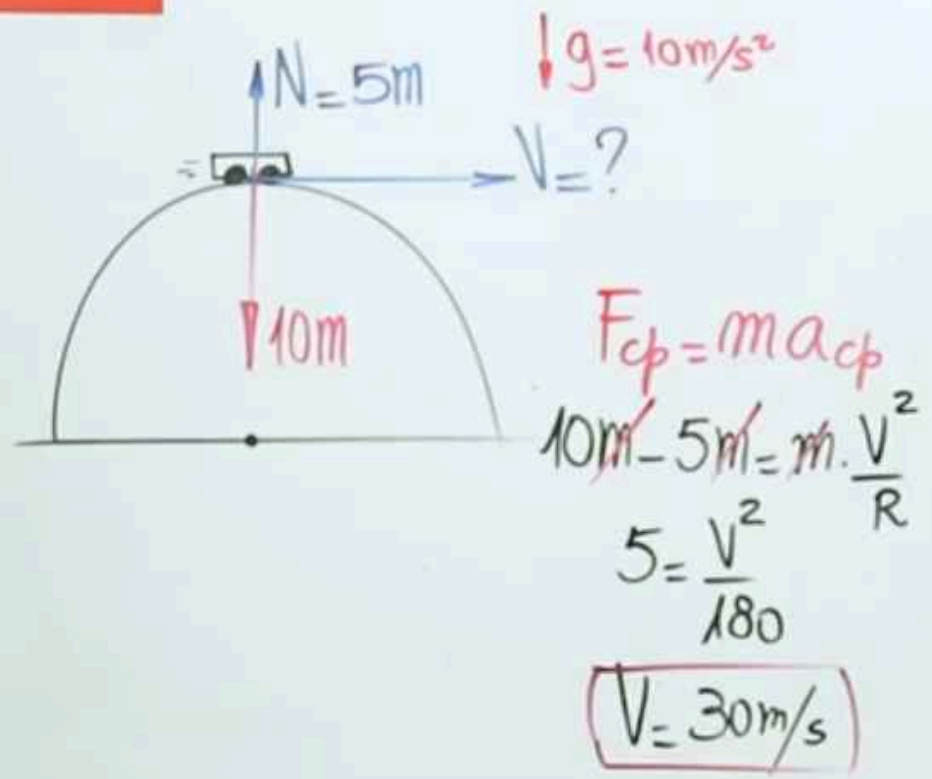 N = 5m
g = 10m/s²
V = ?
10m
Fcp = macp
10m - 5m = m · V²/R
5 = V²/180
V = 30m/s